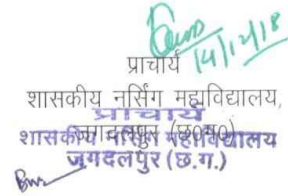 14/12/18
प्राचार्य
शासकीय नर्सिंग महाविद्यालय,
जगदलपुर (छ०ग०)
प्राचार्य
शासकीय नर्सिंग महाविद्यालय
जगदलपुर (छ.ग.)